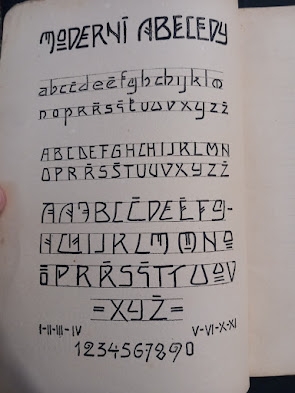 MODERNÍ ABECEDY
abcčdeěfghchijklm
noprřsštuúvxyzž
ABCDEFGHCHIJKLMN
OPRŘSŠTUŮVXYZŽ
AABBCČDEĚFG-
HCHIJKLMMNO
OPRŘSŠTTUŮV
=XYŽ=
I-II-III-IV V-VI-X-XI
1234567890